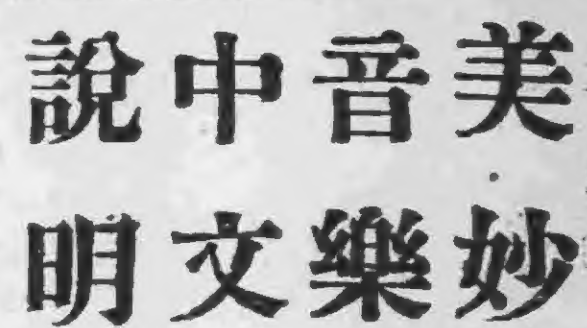 美妙
音樂
中文
說明